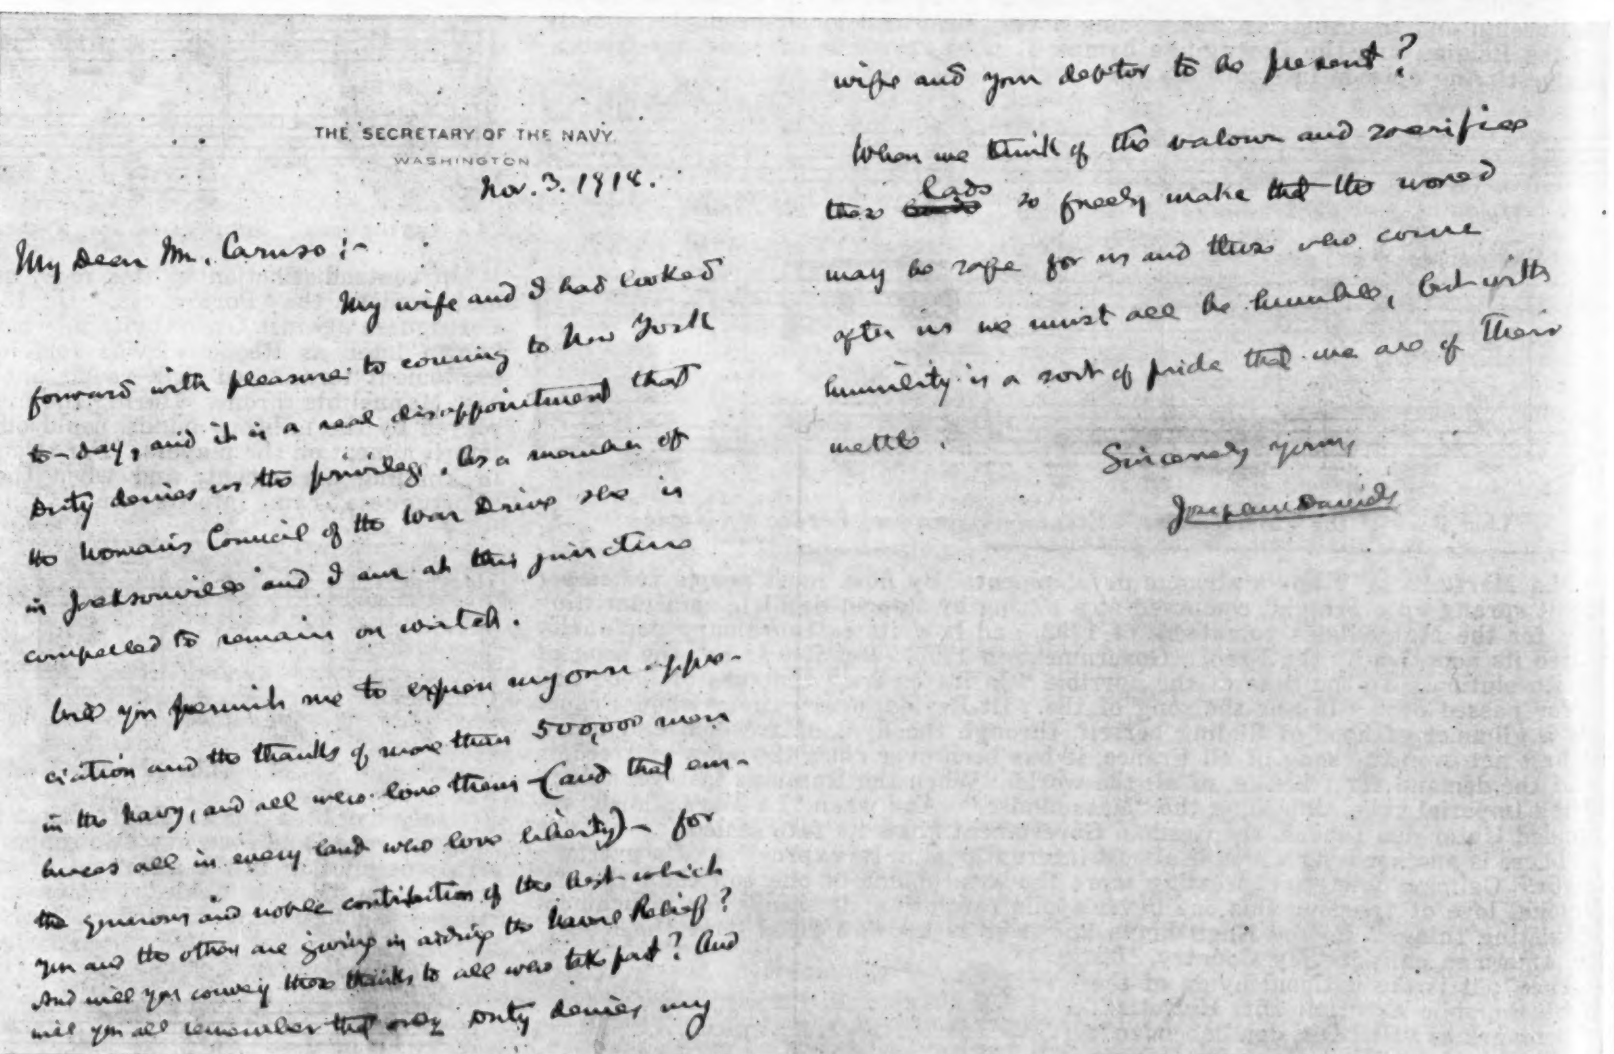 THE SECRETARY OF THE NAVY.
WASHINGTON
Nov. 3. 1918.
My Dear Mr. Caruso:-
My wife and I had looked
forward with pleasure to coming to New York
to-day, and it is a real disappointment that
Duty denies us the privilege. As a member of
the Woman's Council of the War Drive she is
in Jacksonville and I am at this juncture
compelled to remain on watch.
Will you permit me to express my own appre-
ciation and the thanks of more than 500,000 men
in the Navy, and all who love them - (and that em-
braces all in every land who love liberty) - for
the generous and noble contribution of the best which
you and the others are giving in aiding the Naval Relief?
And will you convey these thanks to all who take part? And
will you all remember that only Duty denies my
wife and your debtor to be present?
When we think of the valour and sacrifice
these lads so freely make that the world
may be safe for us and those who come
after us we must all be humble, but with
humility is a sort of pride that we are of their
mettle.
Sincerely yours,
Josephus Daniels